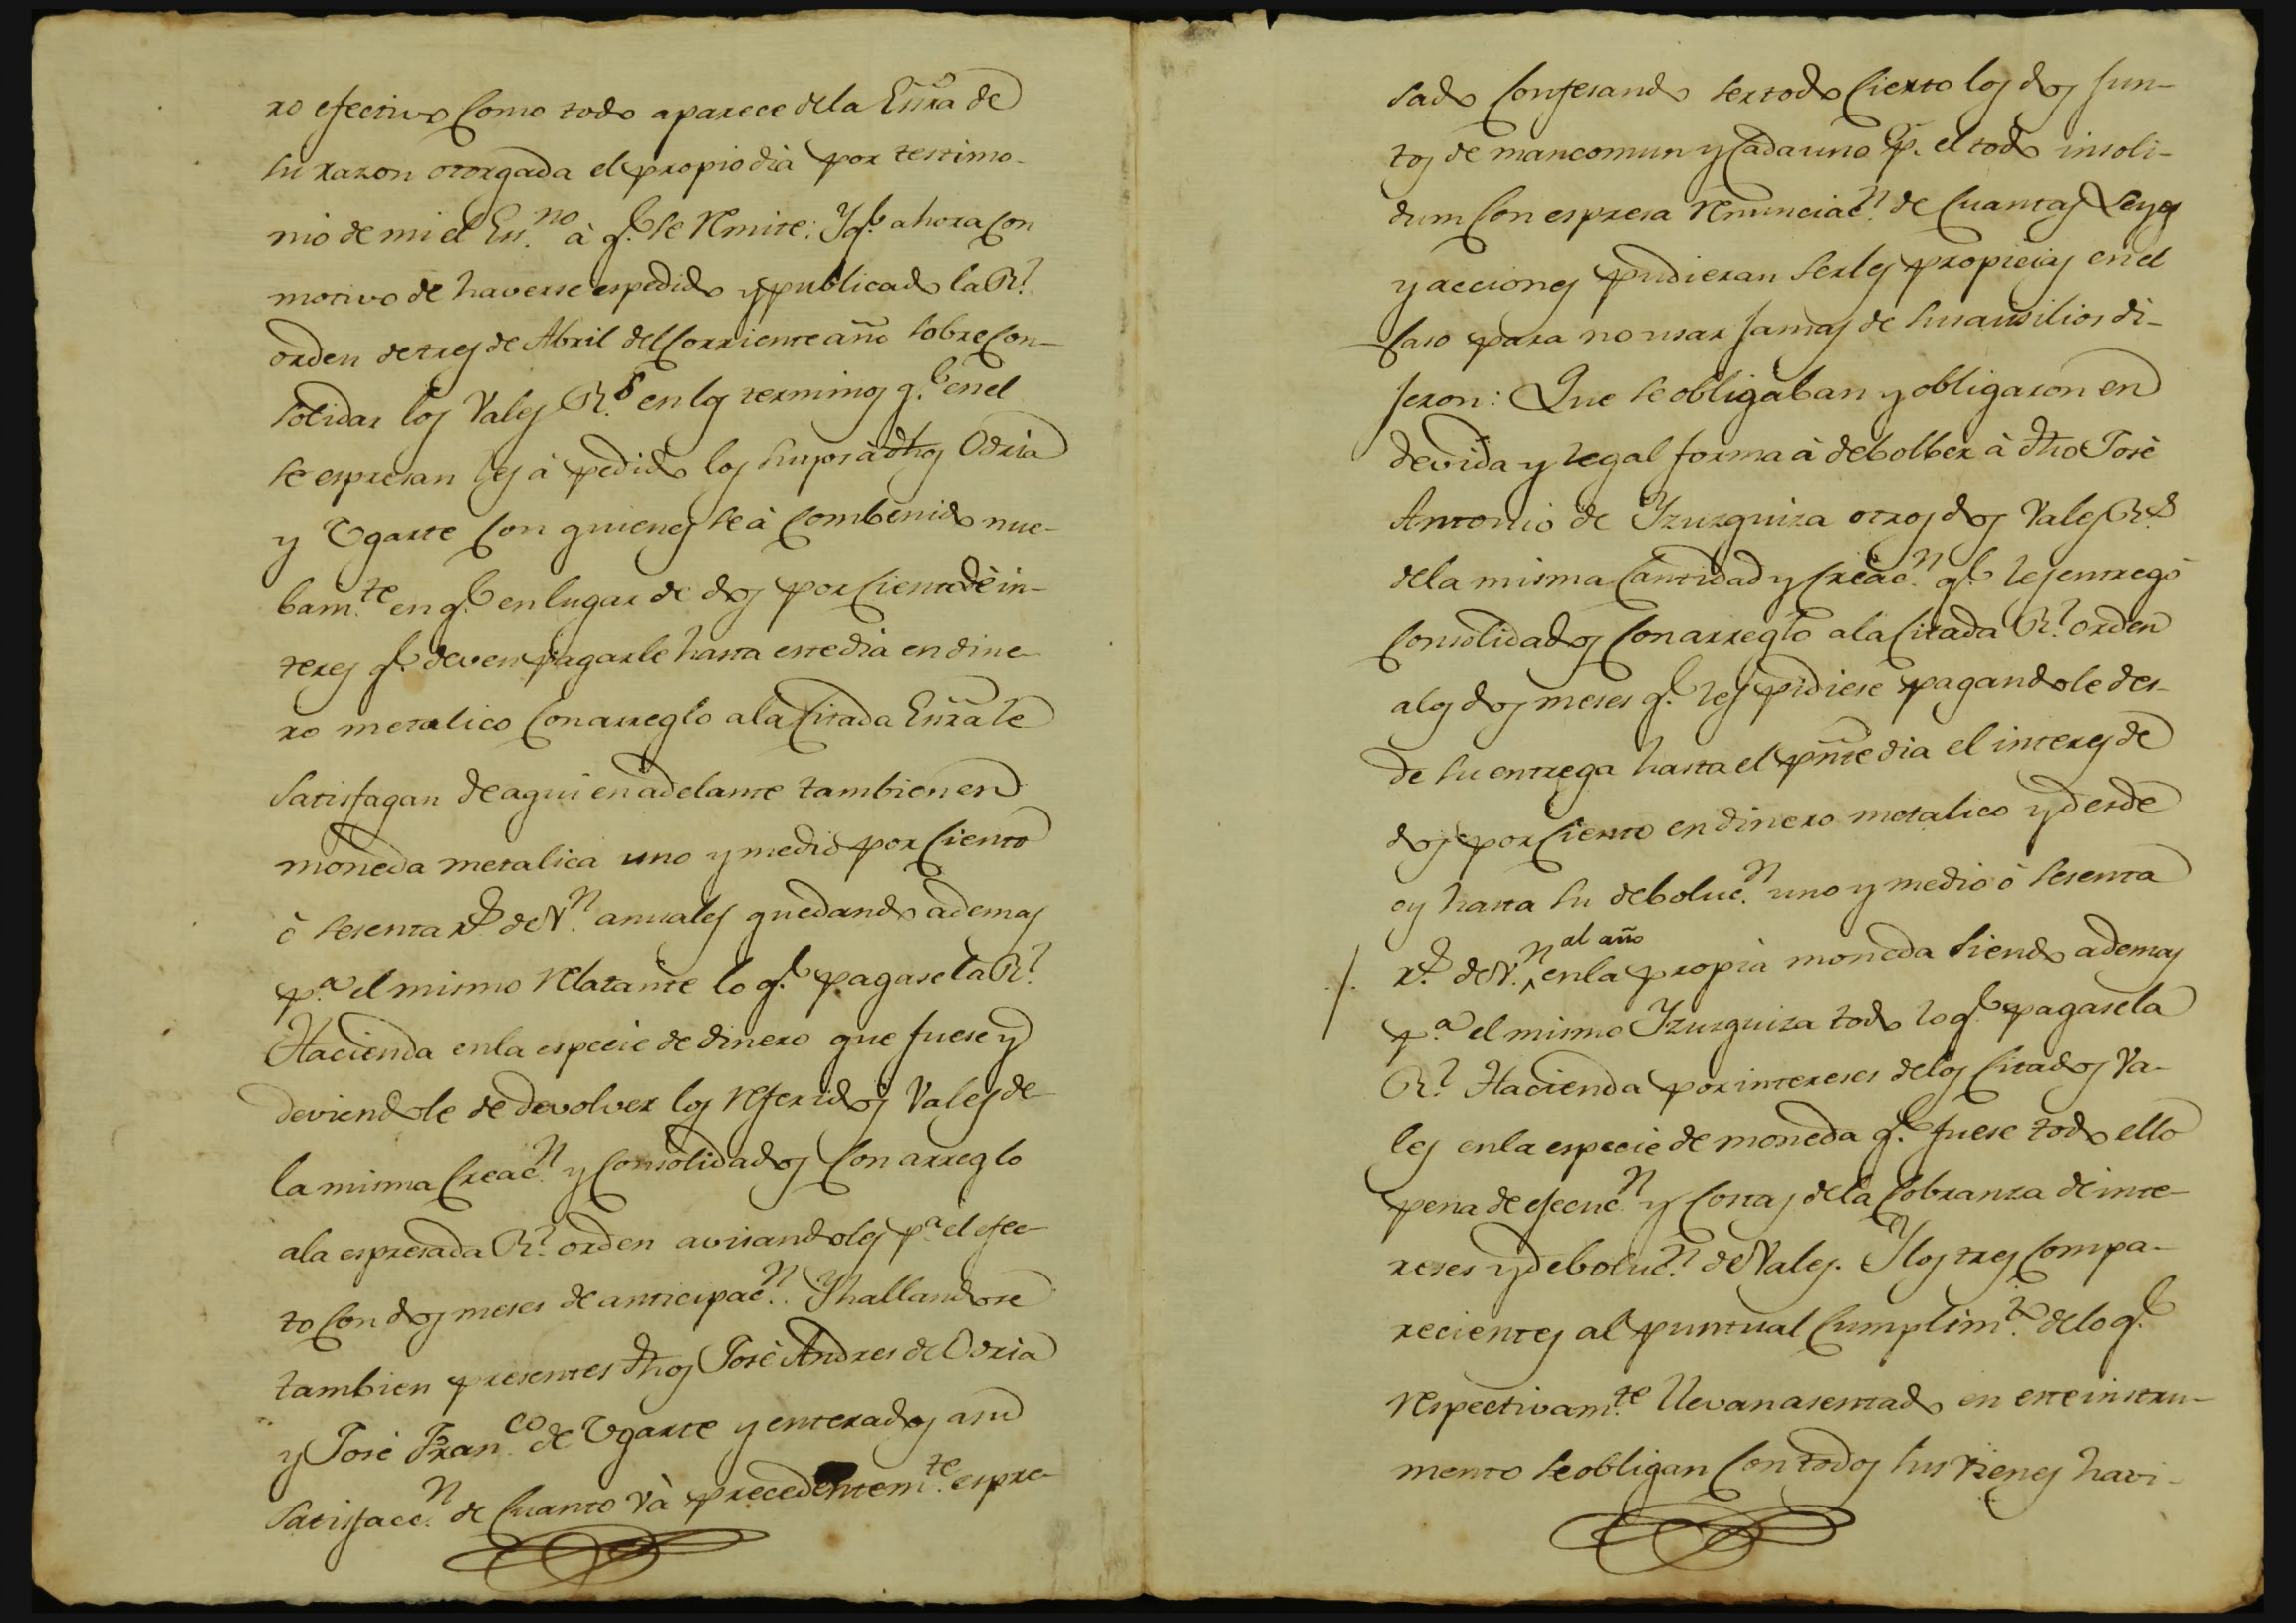 ro efectivo como todo aparece dela Essra de
su razon otorgada el propio dia por testimo-
nio de mi el Ess.no à q.e se remite: Y q.e ahora con
motivo de haverse espedido y publicado la R.l
orden de tres de Abril del corriente año sobre con-
solidar los Vales R.s en los terminos q.e en el
se espresan les à pedido los suyos à dhos Odria
y Ugarte con quienes se à combenido nue-
bam.te en q.e en lugar de dos por ciento de in-
teres q.e deven pagarle hasta este dia en dine-
ro metalico con arreglo ala citada Essra le
satisfagan de aqui en adelante tambien en
moneda metalica uno y medio por ciento
ò sesenta r.s de V.n anuales quedando ademas
p.a el mismo relatante lo q.e pagase la R.l
Hacienda en la especie de dinero que fuese y
deviendole de devolver los referidos Vales de
la misma creac.n y consolidados con arreglo
ala espresada R.l orden avisandoles p.a el efec-
to con dos meses de anticipac.n. Y hallandose
tambien presentes dhos José Andres de Odria
y José Fran.co de Ugarte y enterados asu
satisfacc.n de cuanto và precedentem.te espre-
sado confesando ser todo cierto los dos jun-
tos de mancomun y cada uno p.r el todo insoli-
dum con espresa renunciac.n de cuantas Leyes
y acciones pudieran serles propicias en el
caso para no usar jamas de sus ausilios di-
jeron: Que se obligaban y obligaron en
devida y legal forma à debolber à dho José
Antonio de Yzuzquiza otros dos Vales R.s
dela misma cantidad y creac.n q.e les entregó
consolidados con arreglo ala citada R.l orden
alos dos meses q.e les pidiese pagandole des-
de su entrega hasta el pñte dia el interes de
dos por ciento en dinero metalico y desde
oy hasta su deboluc.n uno y medio ò sesenta
al año
r.s de V.n ^ en la propia moneda siendo ademas
p.a el mismo Yzuzquiza todo lo q.e pagase la
R.l Hacienda por intereses delos citados Va-
les en la especie de moneda q.e fuese todo ello
pena de ejecuc.n y costas dela cobranza de inte-
reses y deboluc.n de Vales. Y los tres compa-
recientes al puntual cumplim.to delo q.e
respectivam.te llevan asentado en este instru-
mento se obligan con todos sus vienes havi-